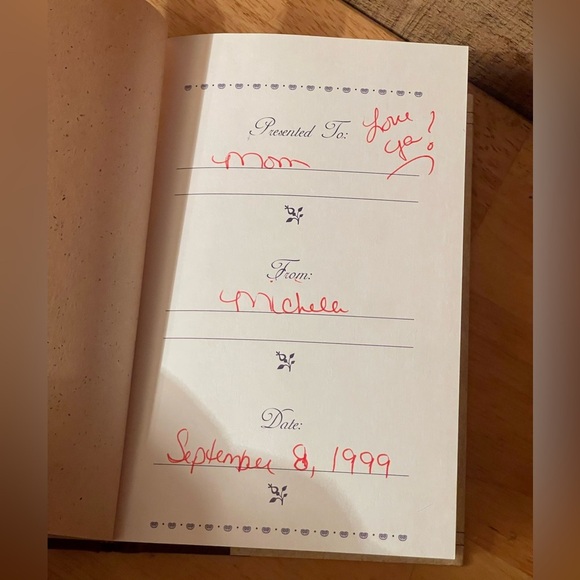 Presented To:
Love
ya!
Mom
From:
Michela
Date:
September 8, 1999